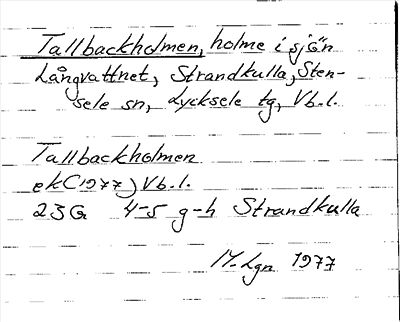 Tallbackholmen, holme i sjön
Långvattnet, Strandkulla, Sten-
sele sn, Lycksele tg, Vb.l.
Tallbackholmen
ek(1977) Vb.l.
23G 4-5 g-h Strandkulla
M. Lgn 1977